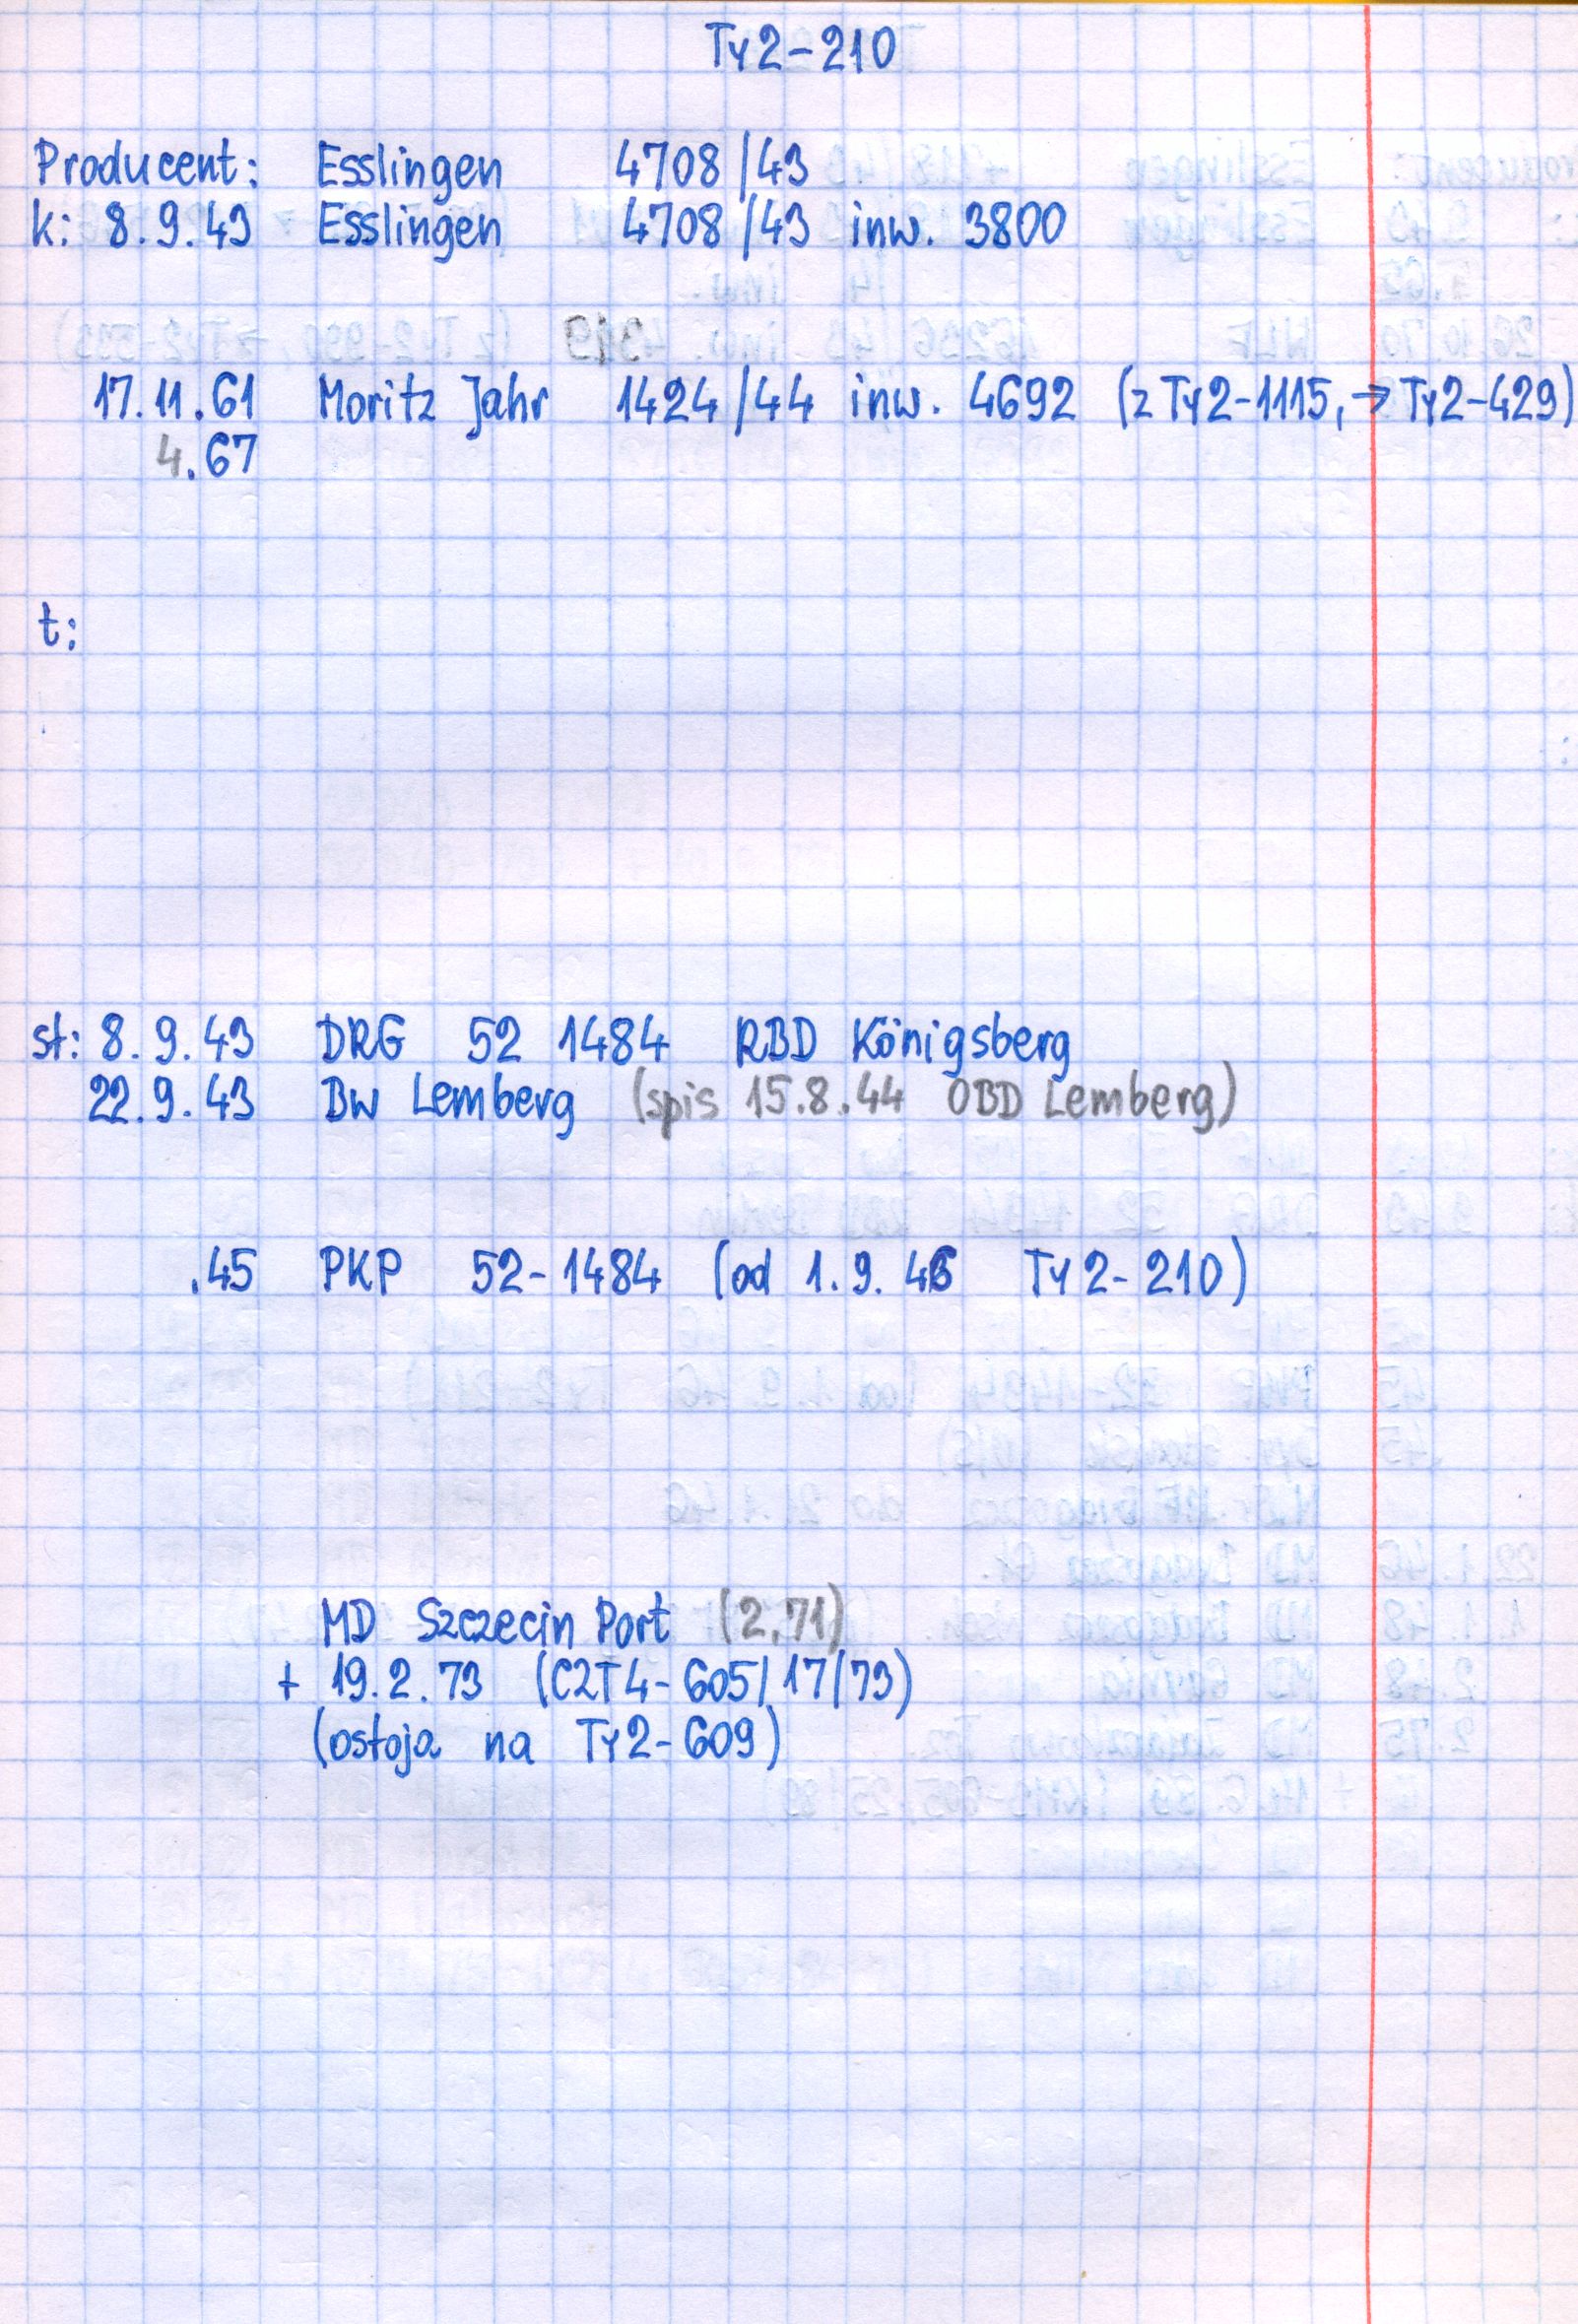 Ty2-210
Producent: Esslingen 4708/43
k: 8.9.43 Esslingen 4708/43 inw. 3800
17.11.61 Moritz Jahr 1424/44 inw. 4692 (z Ty2-1115, → Ty2-429)
4.67
t:
st: 8.9.43 DRG 52 1484 RBD Königsberg
22.9.43 Bw Lemberg (spis 15.8.44 OBD Lemberg)
.45 PKP 52-1484 (od 1.9.46 Ty2-210)
MD Szczecin Port (2.71)
+ 19.2.73 (C2T4-605/17/73)
(ostoja na Ty2-609)